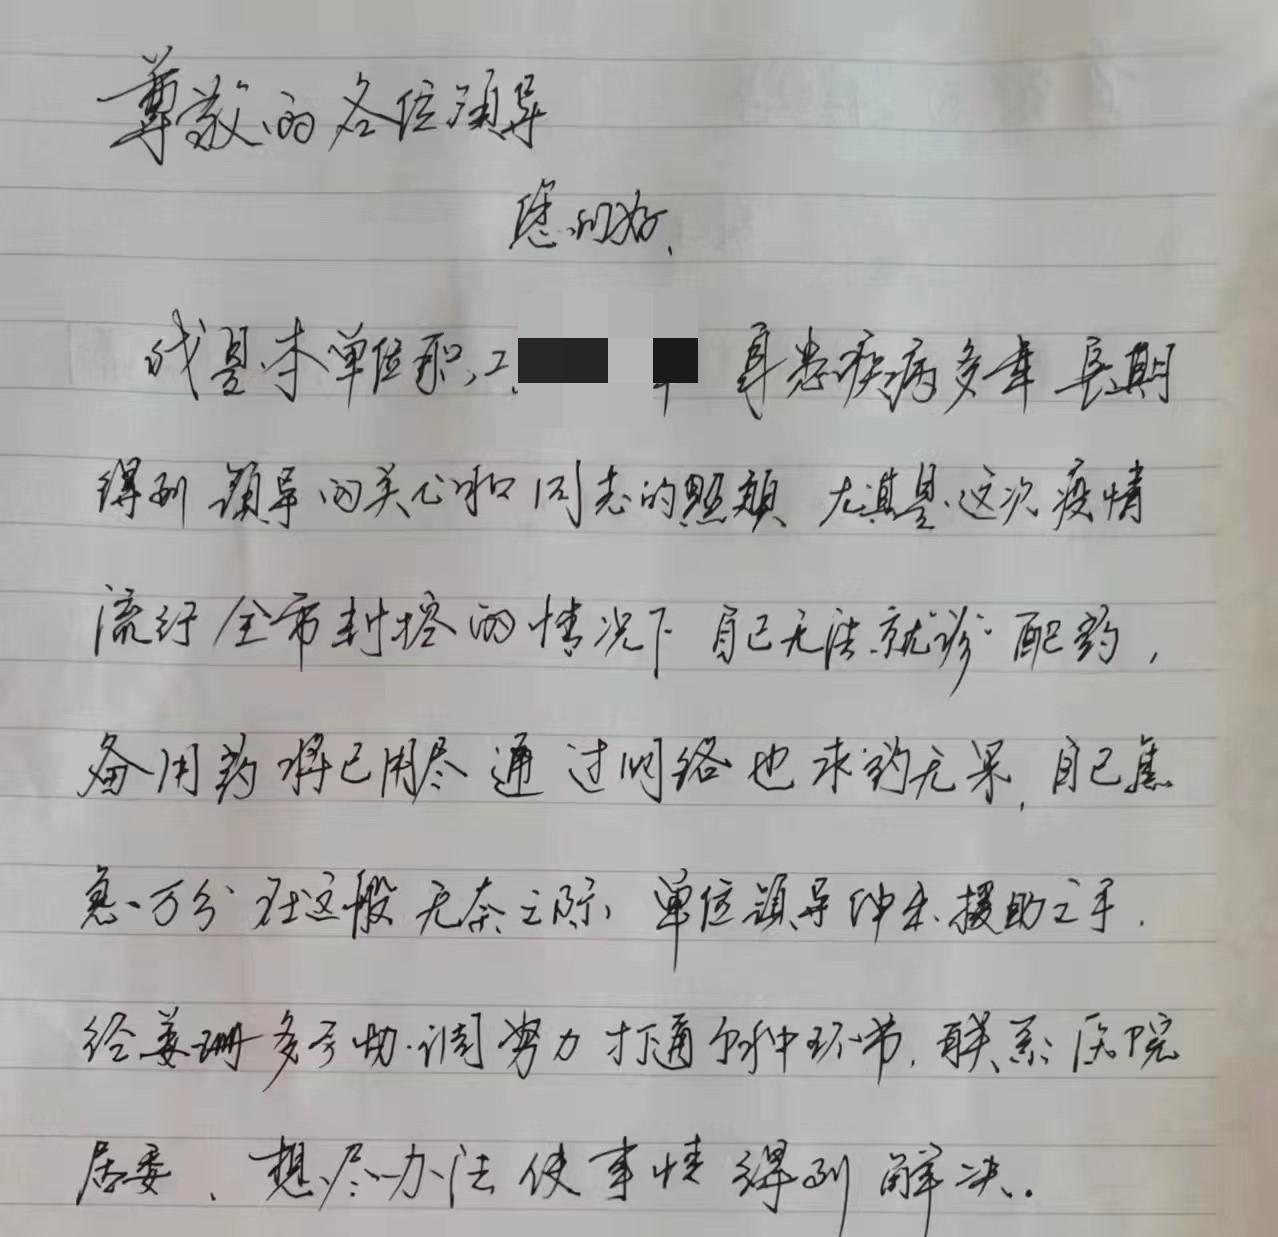 尊敬的各位领导
您们好、
我是本单位职工 身患疾病多年 长期
得到领导的关心和同志的照顾 尤其是这次疫情
流行全市封控的情况下 自己无法就诊配药,
备用药将已用尽 通过网络也求药无果, 自己焦
急万分 在这般无奈之际, 单位领导伸出援助之手.
经姜珊多方协调努力打通各种环节, 联系医院
居委、想尽办法使事情得到解决.